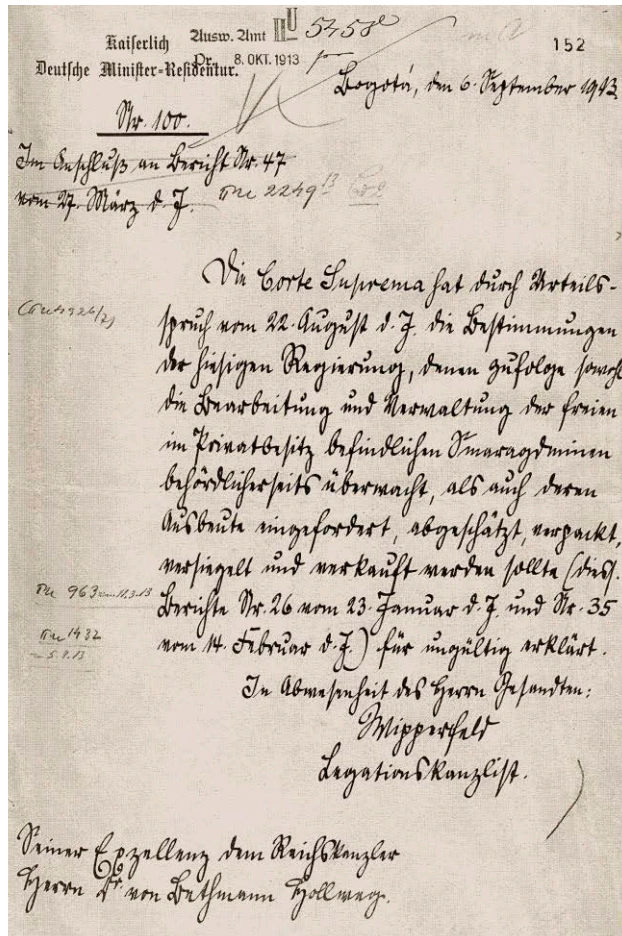 Kaiserlich
Deutsche Minister-Residentur.
Ausw. Amt II U 5458
Pr. 8. OKT. 1913
152
Bogotá, den 6. September 1913.
Nr. 100.
Im Anschluß an Bericht Nr. 47
vom 27. März d. J.
2249 13
Die Corte Suprema hat durch Urteils-
spruch vom 22. August d. J. die Bestimmungen
der hiesigen Regierung, denen zufolge sowohl
die Bearbeitung und Verwaltung der freien
im Privatbesitz befindlichen Smaragdminen
behördlicherseits überwacht, als auch deren
Ausbeute eingefordert, abgeschätzt, verpackt,
versiegelt und verkauft werden sollte (diess.
Berichte Nr. 26 vom 23. Januar d. J. und Nr. 35
vom 14. Februar d. J.) für ungültig erklärt.
963
1432
In Abwesenheit des Herrn Gesandten:
Wipperfeld
Legationskanzlist.
Seiner Exzellenz dem Reichskanzler
Herrn Dr. von Bethmann Hollweg.